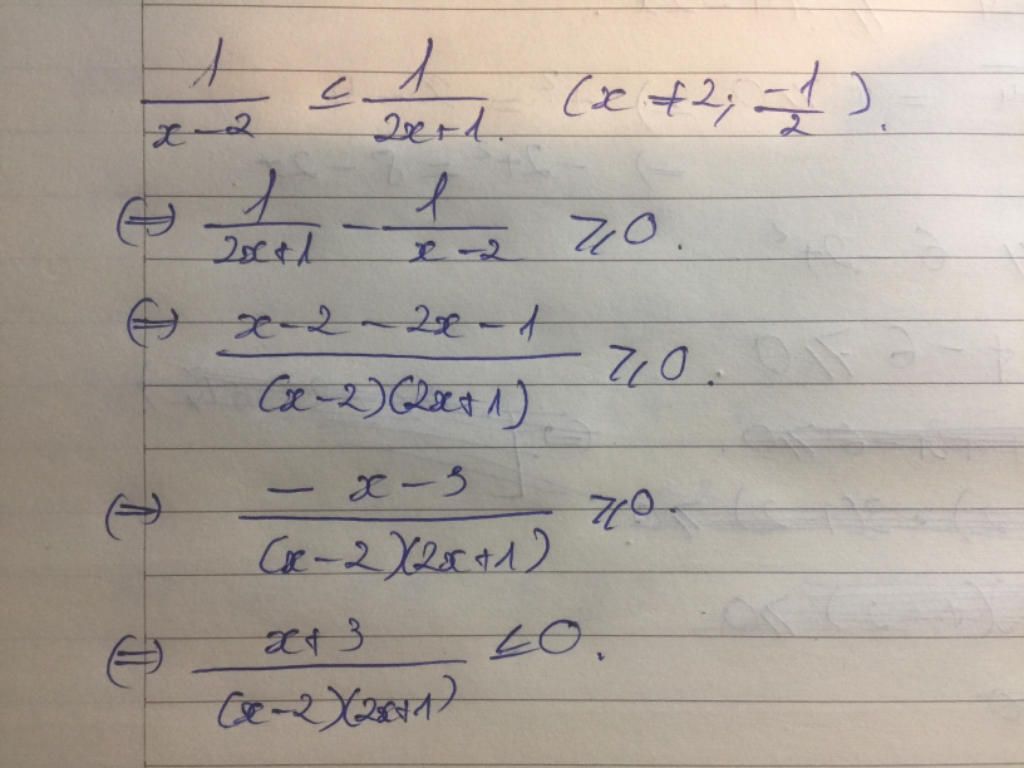 1/(x-2) ≤ 1/(2x+1). (x ≠ 2; -1/2).
⇔ 1/(2x+1) - 1/(x-2) ⩾ 0.
⇔ (x-2-2x-1)/((x-2)(2x+1)) ⩾ 0.
⇔ (-x-3)/((x-2)(2x+1)) ⩾ 0.
⇔ (x+3)/((x-2)(2x+1)) ≤ 0.